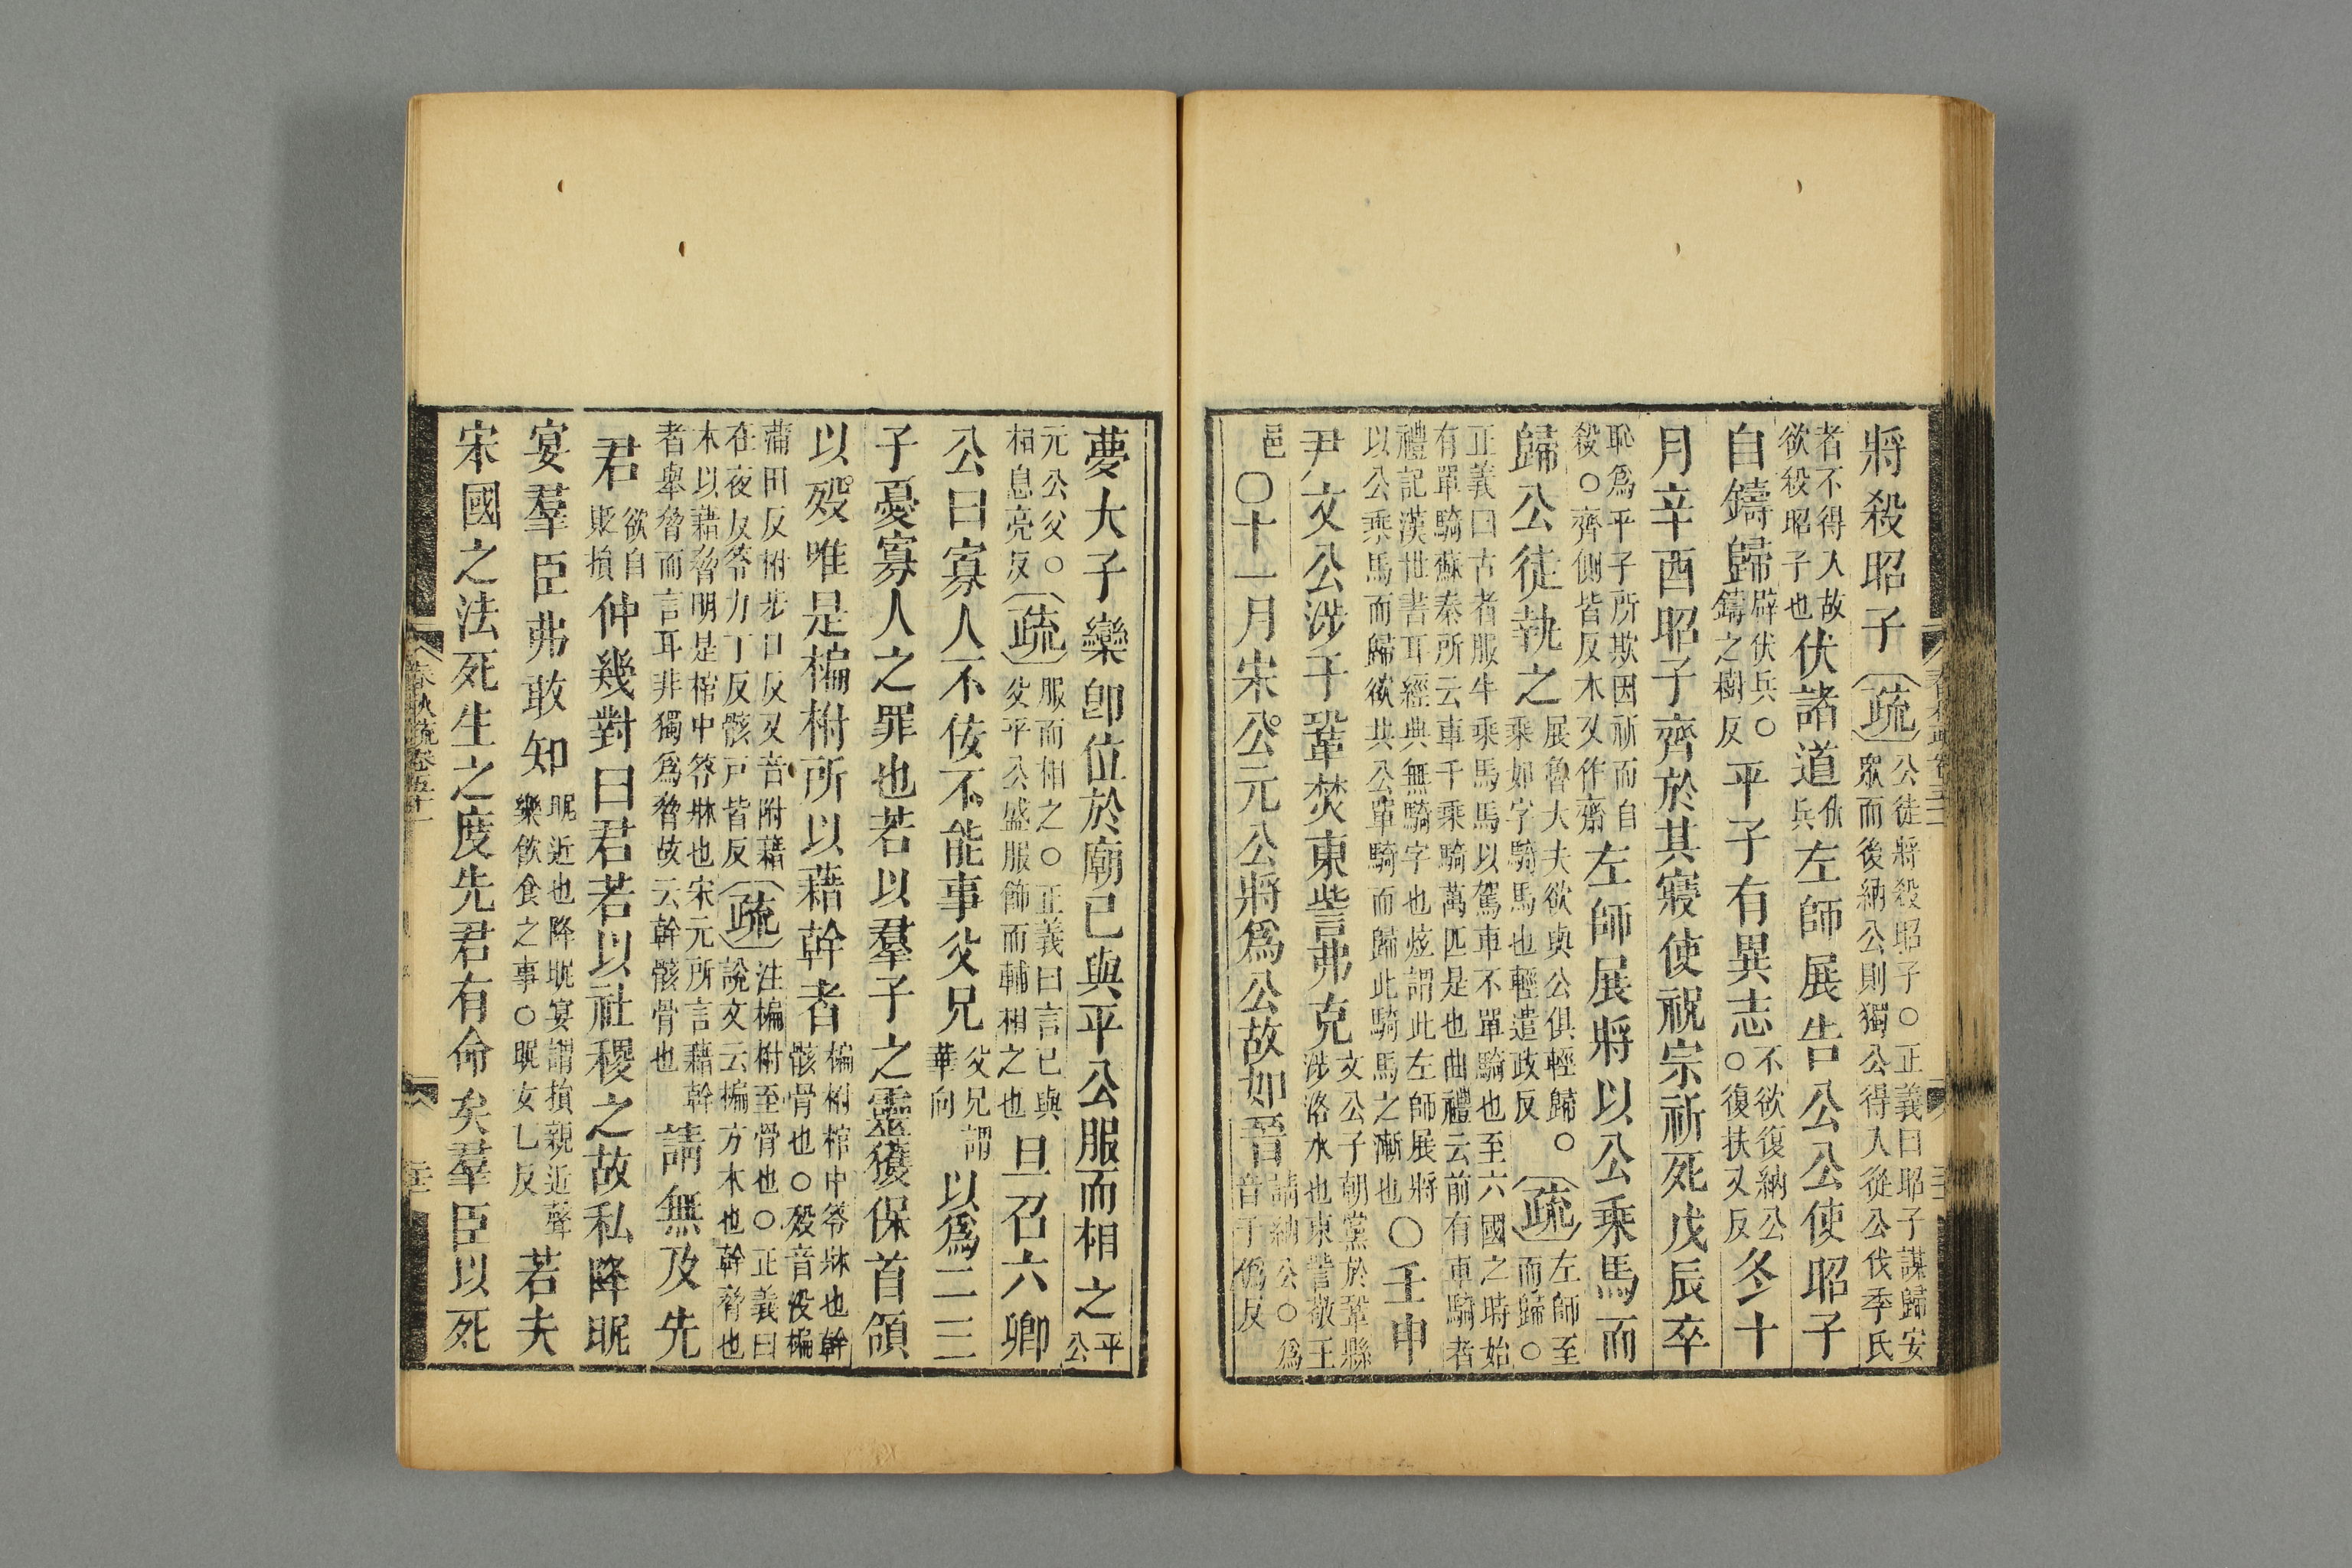 將殺昭子疏公徒將殺昭子○正義曰昭子謀歸安
眾而後納公則獨公得入從公伐季氏
者不得入故
欲殺昭子也伏諸道伏
兵左師展告公公使昭子
自鑄歸辟伏兵○
鑄之樹反平子有異志不欲復納公
○復扶又反冬十
月辛酉昭子齊於其寢使祝宗祈死戊辰卒
恥爲平子所欺因祈而自
殺○齊側皆反本又作齋左師展將以公乘馬而
歸公徒執之展魯大夫欲與公俱輕歸○
乘如字騎馬也輕遣政反疏左師至
而歸○
正義曰古者服牛乘馬馬以駕車不單騎也至六國之時始
有單騎蘇秦所云車千乘騎萬匹是也曲禮云前有車騎者
禮記漢世書耳經典無騎字也炫謂此左師展將
以公乘馬而歸欲共公單騎而歸此騎馬之漸也○壬申
尹文公涉于鞏焚東訾弗克文公子朝黨於鞏縣
涉洛水也東訾敬王
邑○十一月宋公元公將爲公故如晉請納公○爲
音于僞反
夢大子欒卽位於廟已與平公服而相之平
公
元公父○
相息亮反疏服而相之○正義曰言已與
父平公盛服飾而輔相之也旦召六卿
公曰寡人不佞不能事父兄父兄謂
華向以爲二三
子憂寡人之罪也若以羣子之靈獲保首領
以歿唯是楄柎所以藉幹者楄柎棺中笭牀也幹
骸骨也○歿音沒楄
蒲田反柎步口反又音附藉
在夜反笭力丁反骸戸皆反疏注楄柎至骨也○正義曰
說文云楄方木也幹脅也
木以藉脅明是棺中笭牀也宋元所言藉幹
者舉脅而言耳非獨爲脅故云幹骸骨也請無及先
君欲自
貶損仲幾對曰君若以社稷之故私降昵
宴羣臣弗敢知昵近也降昵宴謂損親近聲
樂飲食之事○昵女乙反若夫
宋國之法死生之度先君有命矣羣臣以死
春秋疏卷五十一